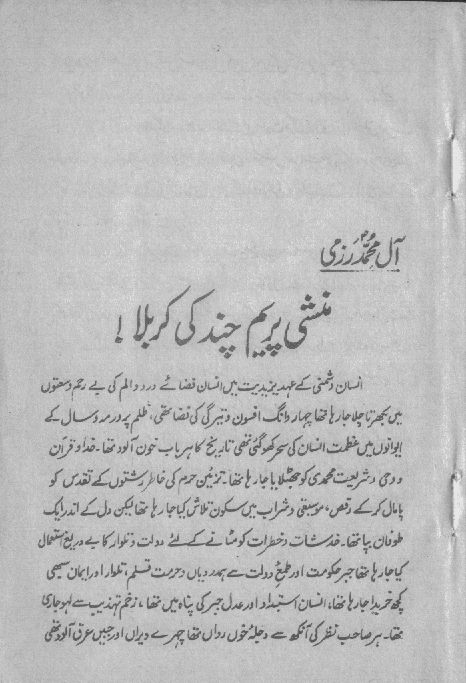 آل محمدؐ رزمی
منشی پریم چند کی کربلا!
انسان دشمنی کے عہدِ یزیدیت میں انسان فضائے درد و الم کی بے رحم وسعتوں
میں بکھرتا چلا جا رہا تھا چہار دانگ افسون و تیرگی کی فضا تھی، ظلم پہ در مہ و سال کے
ایوانوں میں عظمت انسان کی سحر کھو گئی تھی تاریخ کا ہر باب خون آلود تھا۔ خدا و قرآن
و وحی و شریعت محمدی کو جھٹلایا جا رہا تھا۔ تزئین حرم کی خاطر رشتوں کے تقدس کو
پامال کر کے رقص، موسیقی و شراب میں سکون تلاش کیا جا رہا تھا لیکن دل کے اندر ایک
طوفان بپا تھا۔ خدشات و خطرات کو مٹانے کے لئے دولت و تلوار کا بے دریغ استعمال
کیا جا رہا تھا جبر حکومت اور طمع دولت سے ہمدردیاں و حرمت قلم، تلوار اور ایمان سبھی
کچھ خریدا جا رہا تھا، انسان استبداد اور عدل جبر کی پناہ میں تھا، زخم تہذیب سے لہو جاری
تھا۔ ہر صاحب نظر کی آنکھ سے دجلۂ خوں رواں تھا چہرے ویراں اور جبیں عرق آلود تھی